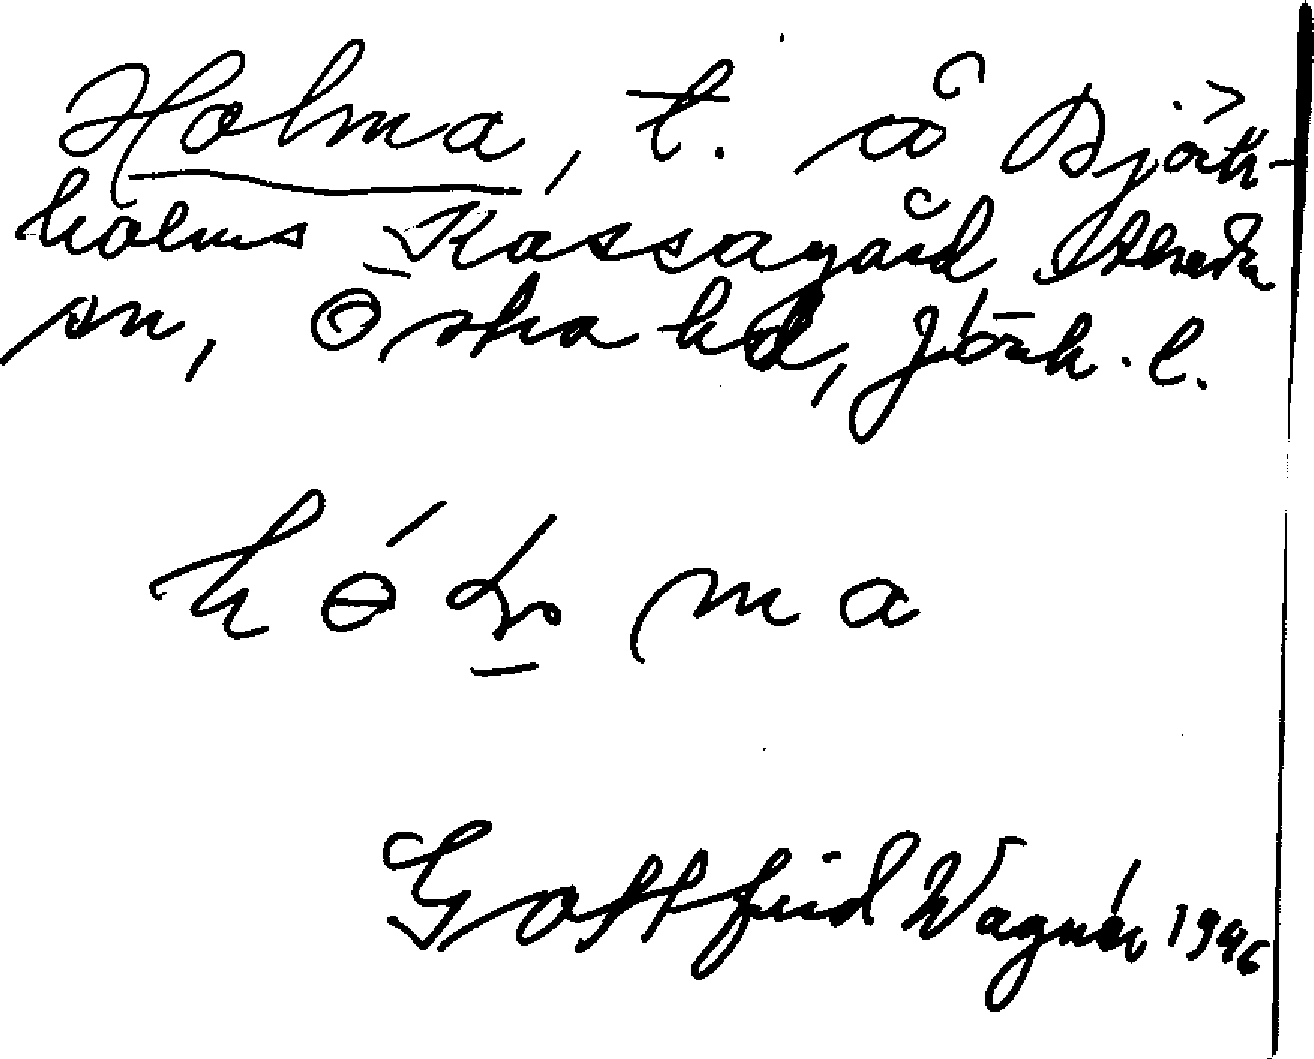 Holma, t. å Björk-
holms Kassagård Almesåkra
sn, Östra hd, Jönk. l.
hó m a
Gottfrid Wagnér 1946